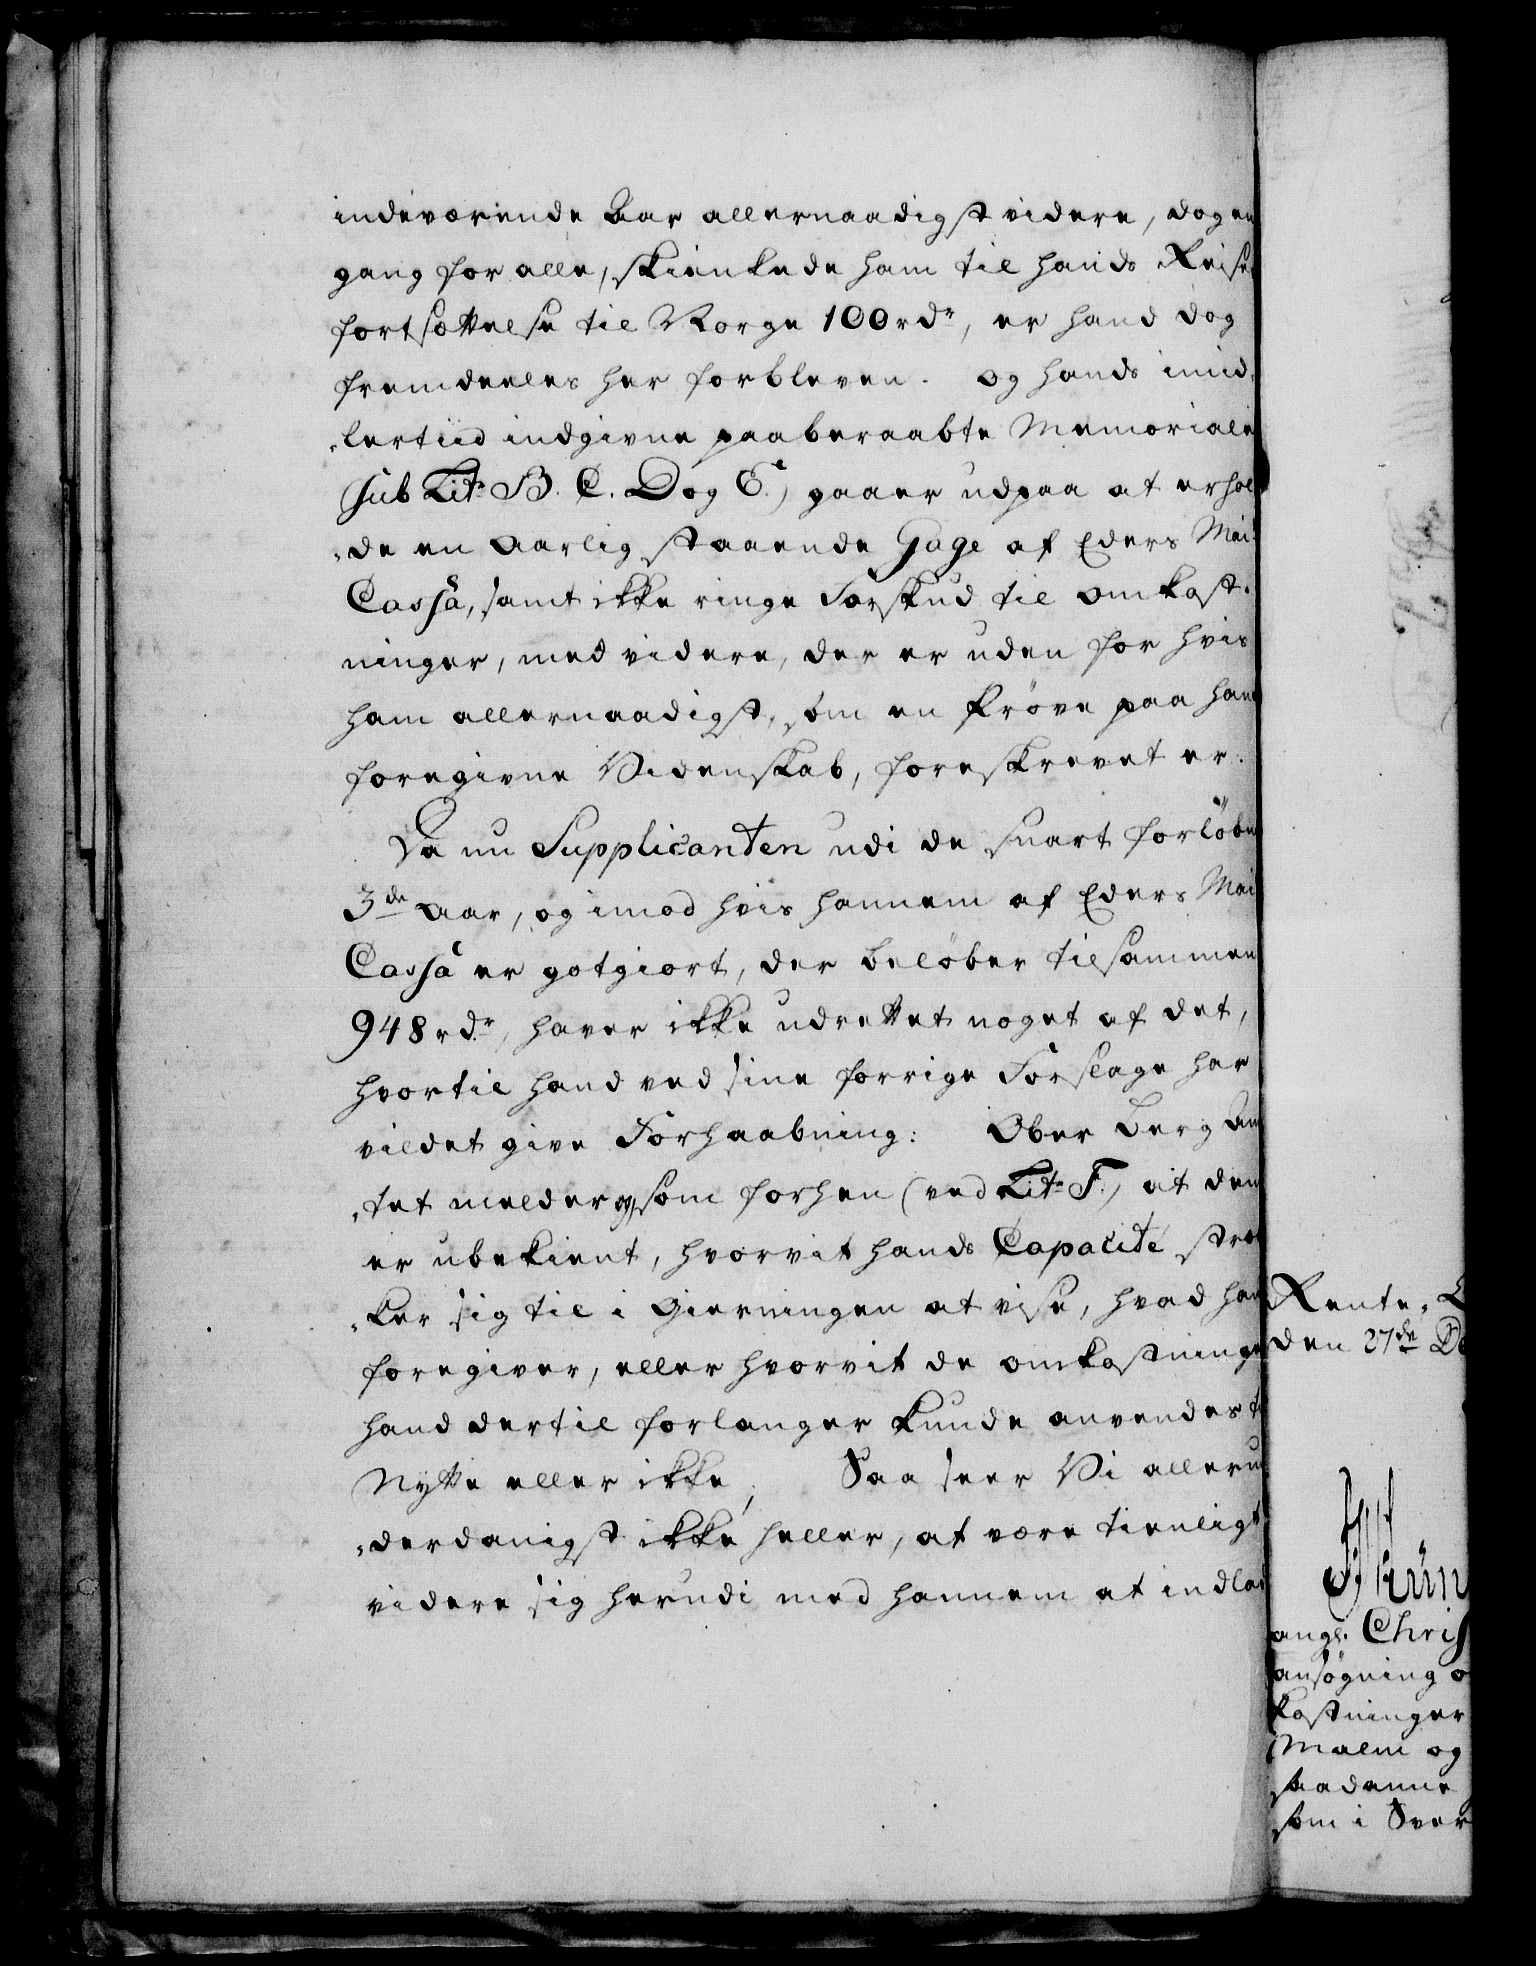 indeværende Aar allernaadigst videre, dog en
gang for alle, skienkede ham til hands Reises
fortsættelse til Norge 100 rdr, er hand dog
fremdeeles her forbleven. og hands imid,
„lertiid indgivne paaberaabte Memoriale
(sub Litr B. C. D og E.) gaaer udpaa at erhol
„de en Aarlig staaende Gage af Eders Mai:
Cassa, samt ikke ringe Forskud til omkost.
ninger, med videre, der er uden for hvis
ham allernaadigst, som en Prøve paa han
foregivne Videnskab, foreskrevet er.
Da nu Supplicanten udi de snart forløbn
3de Aar, og imod hvis hannem af Eders Mai
Cassa er gotgiort, der beløber tilsammen
948 rdr, haver ikke udrettet noget af det,
hvortil hand ved sine forrige Forslage har
vildet give Forhaabning: Ober Berg Am
„tet melder og, som forhen (ved Litr F.) at den
er ubekient, hvorvit hands Capacité stræ
„ker sig til i Gierningen at vise, hvad han
foregiver, eller hvorvit de omkostninge
hand dertil forlanger kunde anvendes t
Nytte eller ikke; Saa seer Vi alleru
„derdanigst ikke heller, at være tienligt
videre sig herudi med hannem at indlad
Rente,
den 27de De
ange. Chris
ansøgning o
kostninger
Malm og
saadanne
som i Sver